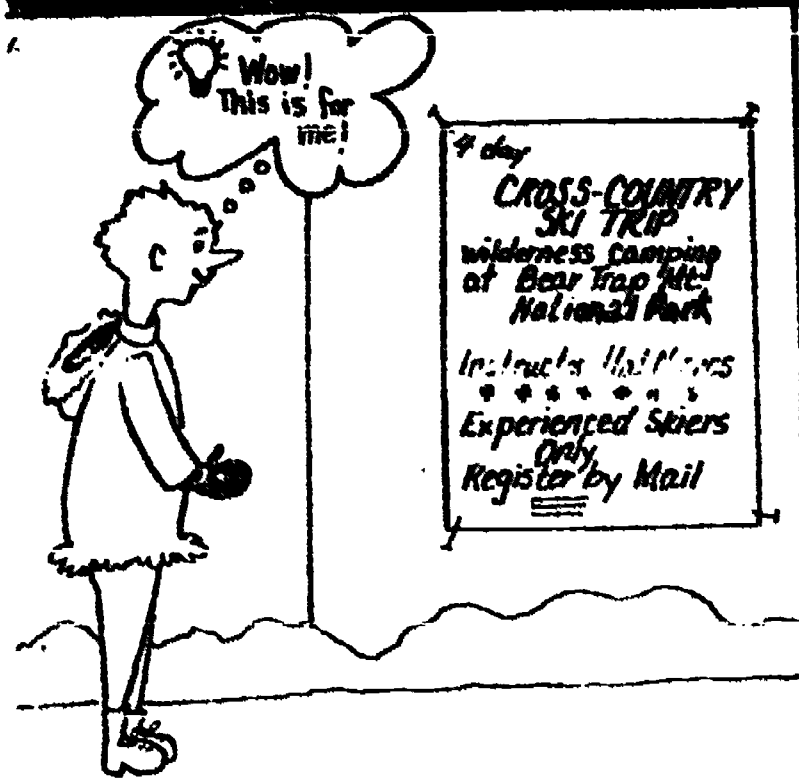 1.
Wow!
This is for
me!
4 day
CROSS-COUNTRY
SKI TRIP
wilderness camping
at Bear Trap Mt.
National Park
Instructor
Experienced Skiers
Only,
Register by Mail